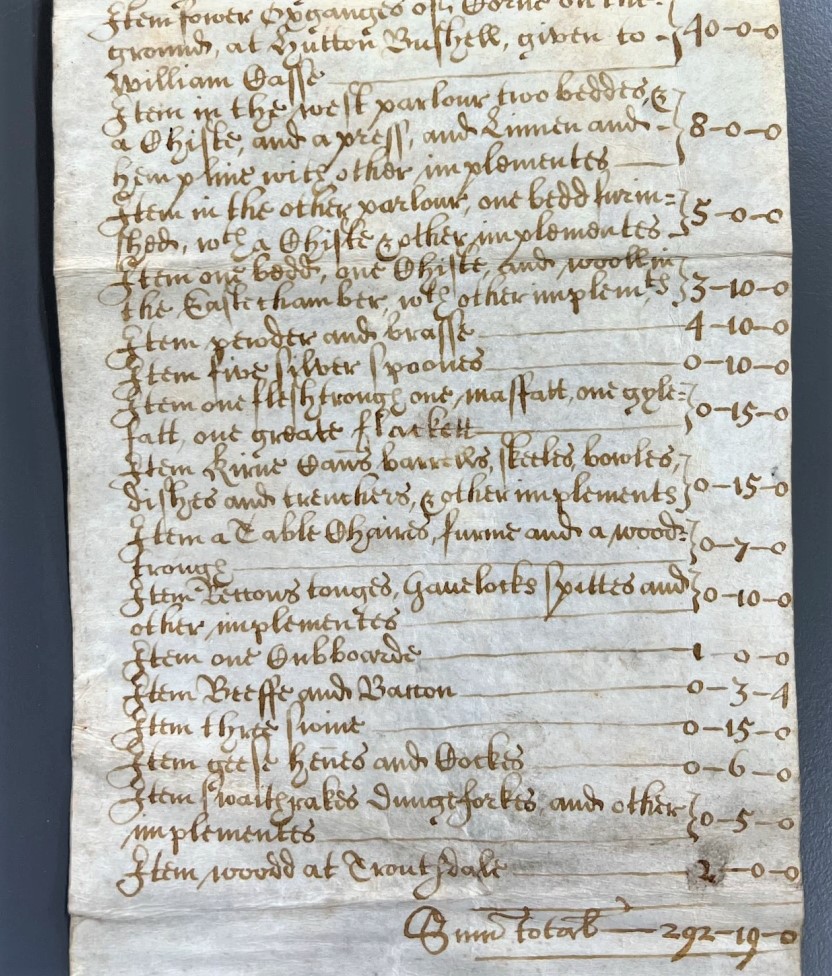 Item fower Oxganges off Corne on the
ground, at Hutton Bushell, given to 40-0-0
William Casse
Item in the west parlour two beddes, &
a Chiste, and a press, and Linnen and 8-0-0
hemp line with other implementes
Item in the other parlour, one bedd furni=
shed, wth a Chiste & other implementes 5-0-0
Item one bedd, one Chiste, and wooll in
the Easte chamber, wth other implemts 3-10-0
Item pewder and brasse 4-10-0
Item five silver spoones 0-10-0
Item one fleshtrough one, masffatt, one gyle=
fatt, one greate flackett 0-15-0
Item Kirne Canns, barrells, skeeles, bowles,
dishes and trenchers, & other implements 0-15-0
Item a Table Chaires, furme and a wood=
trough 0-7-0
Item Reccons tonges, Gavelocks spittes and 0-10-0
other implementes
Item one Cubboarde 1-0-0
Item Beeffe and Bacon 0-3-4
Item three swine 0-15-0
Item geese henes and Cockes 0-6-0
Item swaithrakes Dungeforkes, and other
implementes 0-5-0
Item woodd at Troutsdale 2-0-0
Sum total 292-19-0